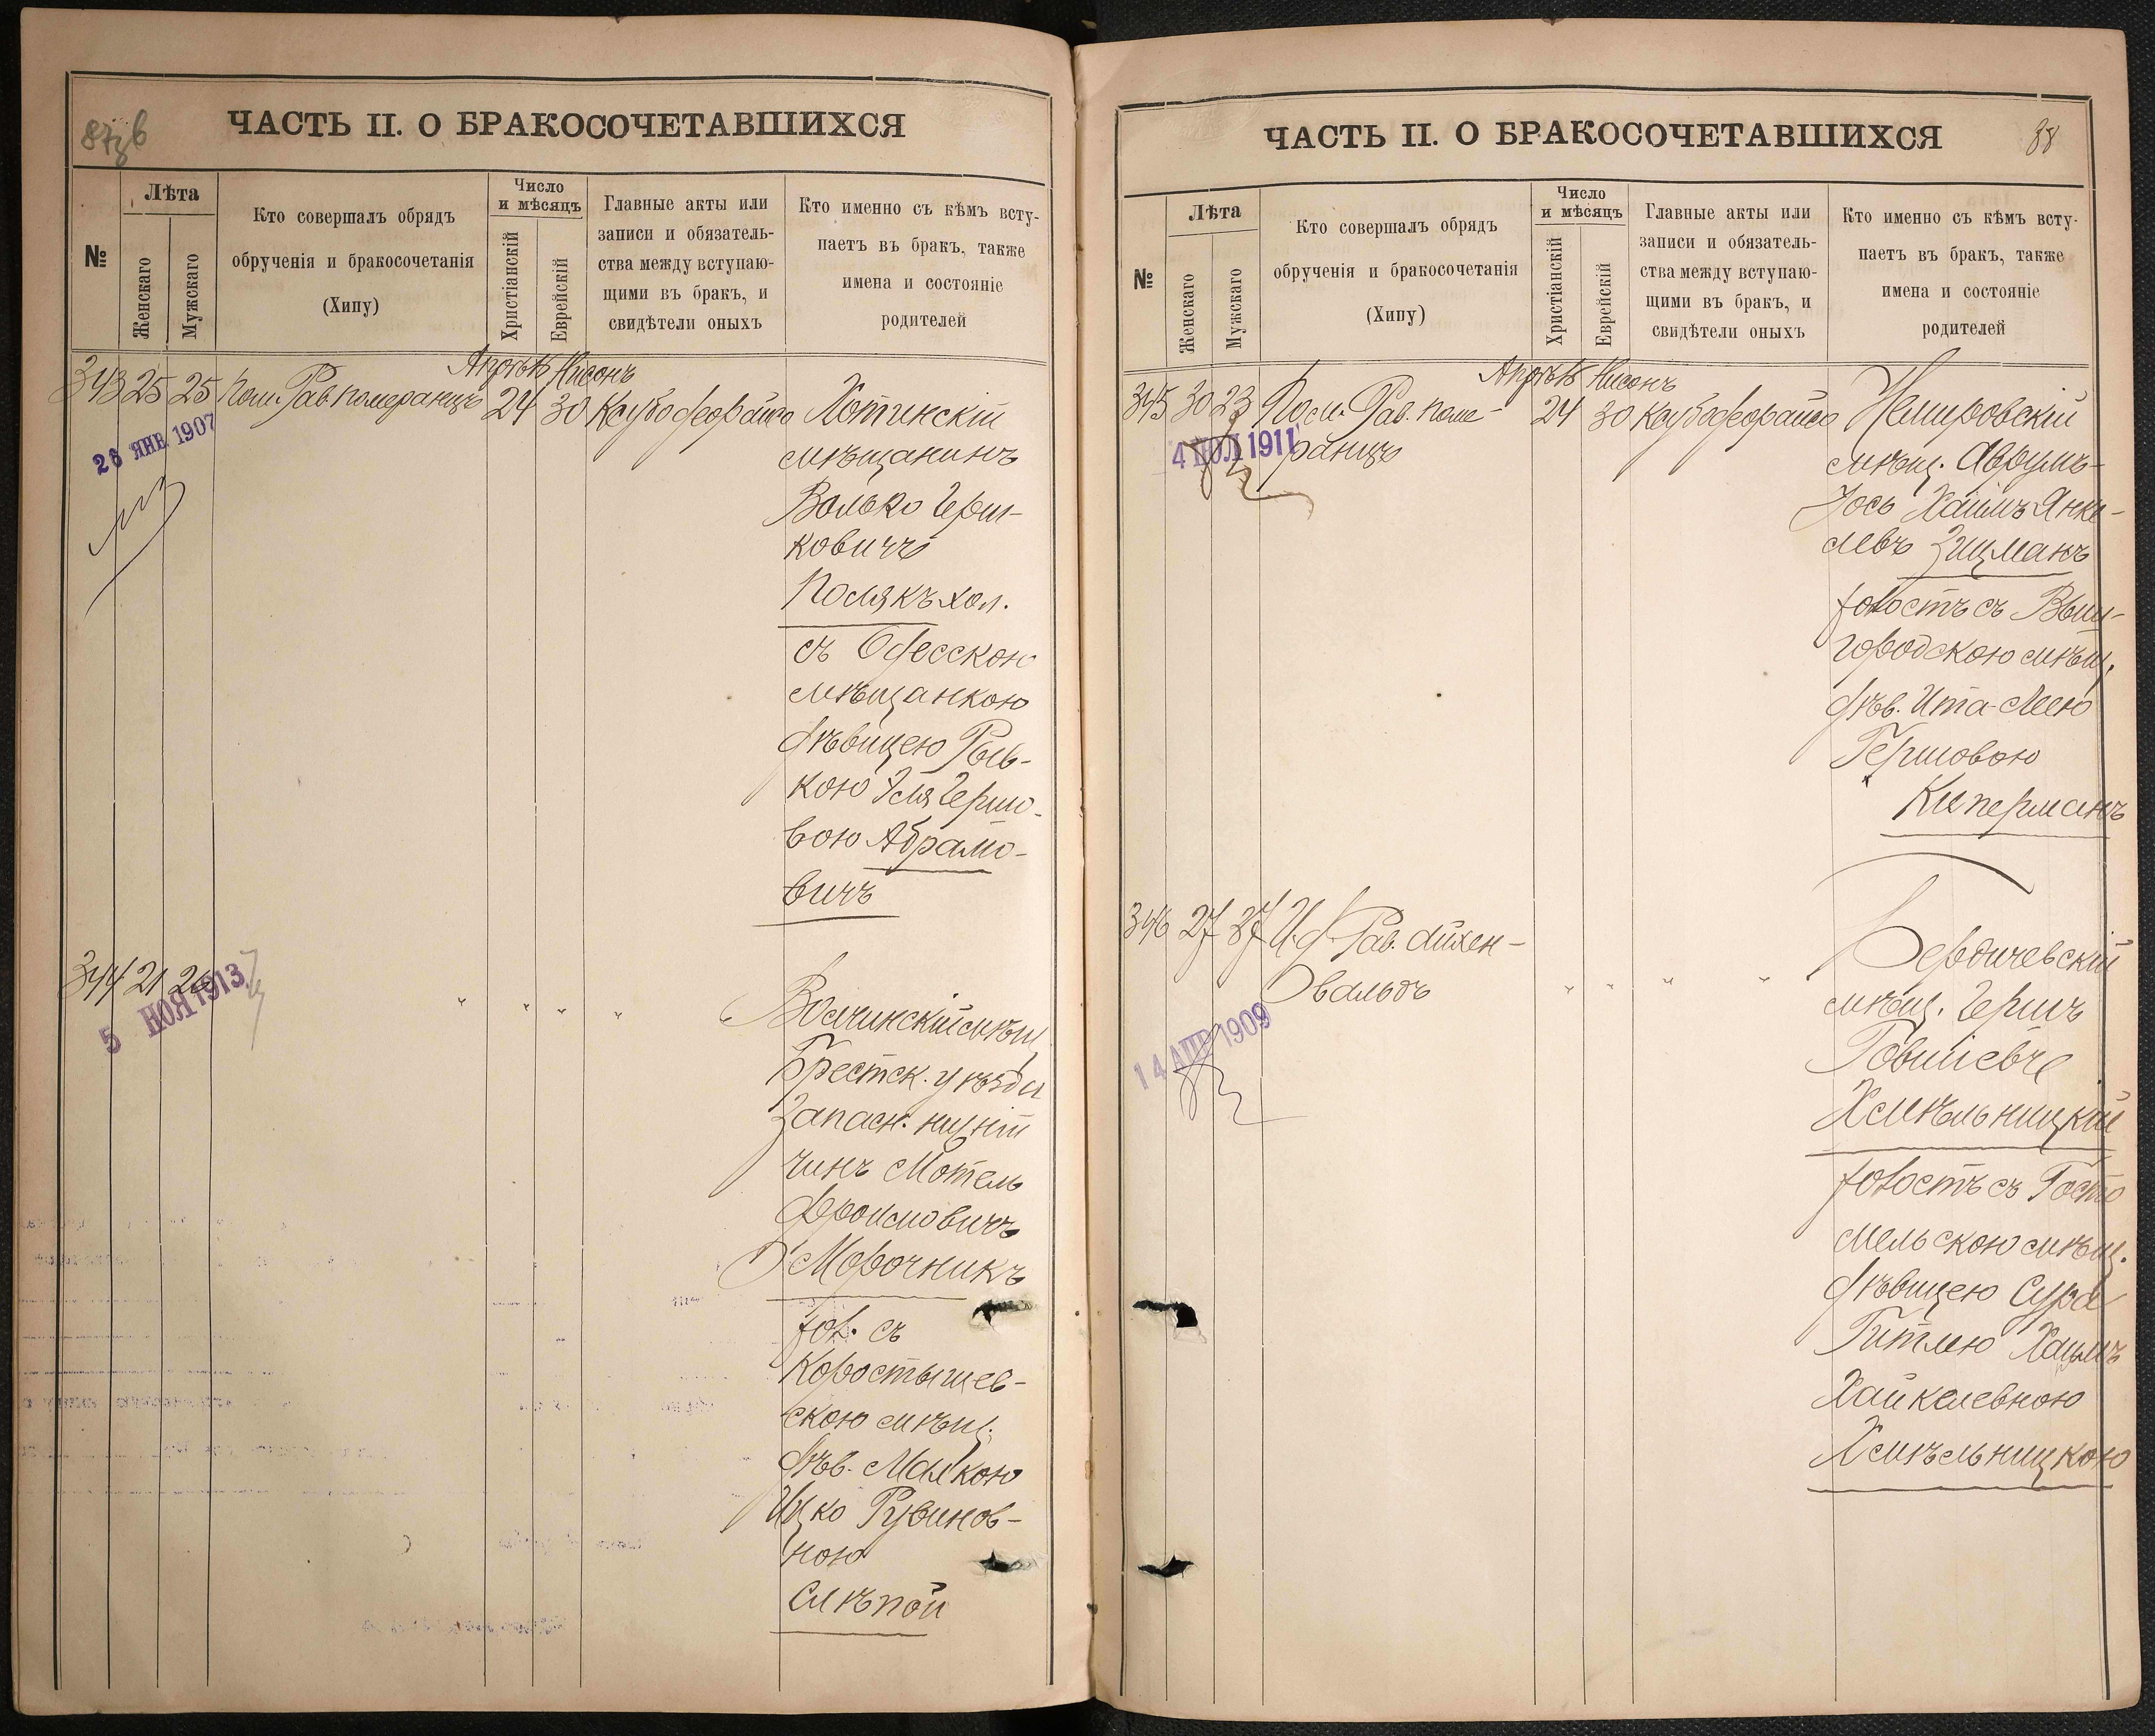 87зв
ЧАСТЬ II. О БРАКОСОЧЕТАВШИХСЯ
№
Лѣта
Женскаго
Мужскаго
Кто совершалъ обрядъ
обрученія и бракосочетанія
(Хипу)
Число
и мѣсяцъ
Христіанскій
Еврейскій
Главные акты или
записи и обязатель-
ства между вступаю-
щими въ бракъ, и
свидѣтели оныхъ
Кто именно съ кѣмъ всту-
паетъ въ бракъ, также
имена и состояніе
родителей
Апрѣль Нисонъ
343 25 25 Пом. Рав. Померанцъ 24 30
26 ЯНВ 1907
Хотинскій
мѣщанинъ
Волько Герш-
ковичъ
Полякъ хол.
съ Одесскою
мѣщанкою
дѣвицею Рыв-
кою Эля Гершо-
вою Абрамо-
вичъ
344 21 26 " " " "
5 НОЯ 1913
Волчинскій мѣщ
Брестск. уѣзда
Запасн. нижній
чинъ Мотель
Фроимовичъ
Морочникъ
хол. съ
Коростышев-
скою мѣщ.
дѣв. Малкою
Ицко Рувинов-
ною
Слѣпой
ЧАСТЬ II. О БРАКОСОЧЕТАВШИХСЯ
88
№
Лѣта
Женскаго
Мужскаго
Кто совершалъ обрядъ
обрученія и бракосочетанія
(Хипу)
Число
и мѣсяцъ
Христіанскій
Еврейскій
Главные акты или
записи и обязатель-
ства между вступаю-
щими въ бракъ, и
свидѣтели оныхъ
Кто именно съ кѣмъ всту-
паетъ въ бракъ, также
имена и состояніе
родителей
Апрѣль Нисонъ
345 30 23 Пом. Рав. Поме-
ранцъ 24 30
4 1911
Немировскій
мѣщ. Аврумъ-
Іось Хаимъ Янке-
левъ Зицманъ
холостъ съ Выш-
городскою мѣщ.
дѣв. Ита-Леею
Гершовою
Киперманъ
346 27 27 И. д. Рав. Айхен-
вальдъ " " " "
14 АПР 1909
Бердичевскій
мѣщ. Гершъ
Товіевъ
Хмѣльницкій
холостъ съ Госто
мельскою мѣщ.
дѣвицею Сура
Гитлею Хаимъ
Хайкелевною
Хмѣльницкою